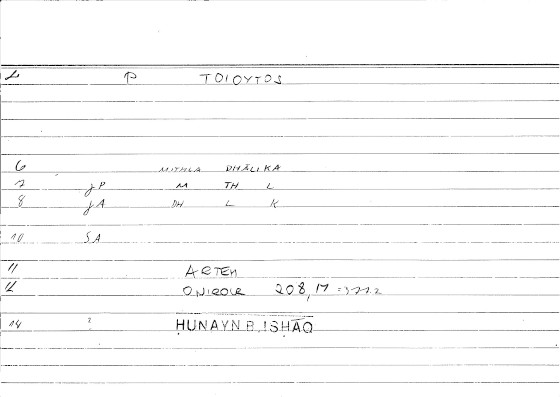 P TOIOYTOS
6 MITHLA DHĀLIKA
7 JP M TH L
8 JA DH L K
10 SA
11 ARTEM
12 ONIROCR 208,17
14 ? ḤUNAYN B. ISḤĀQ